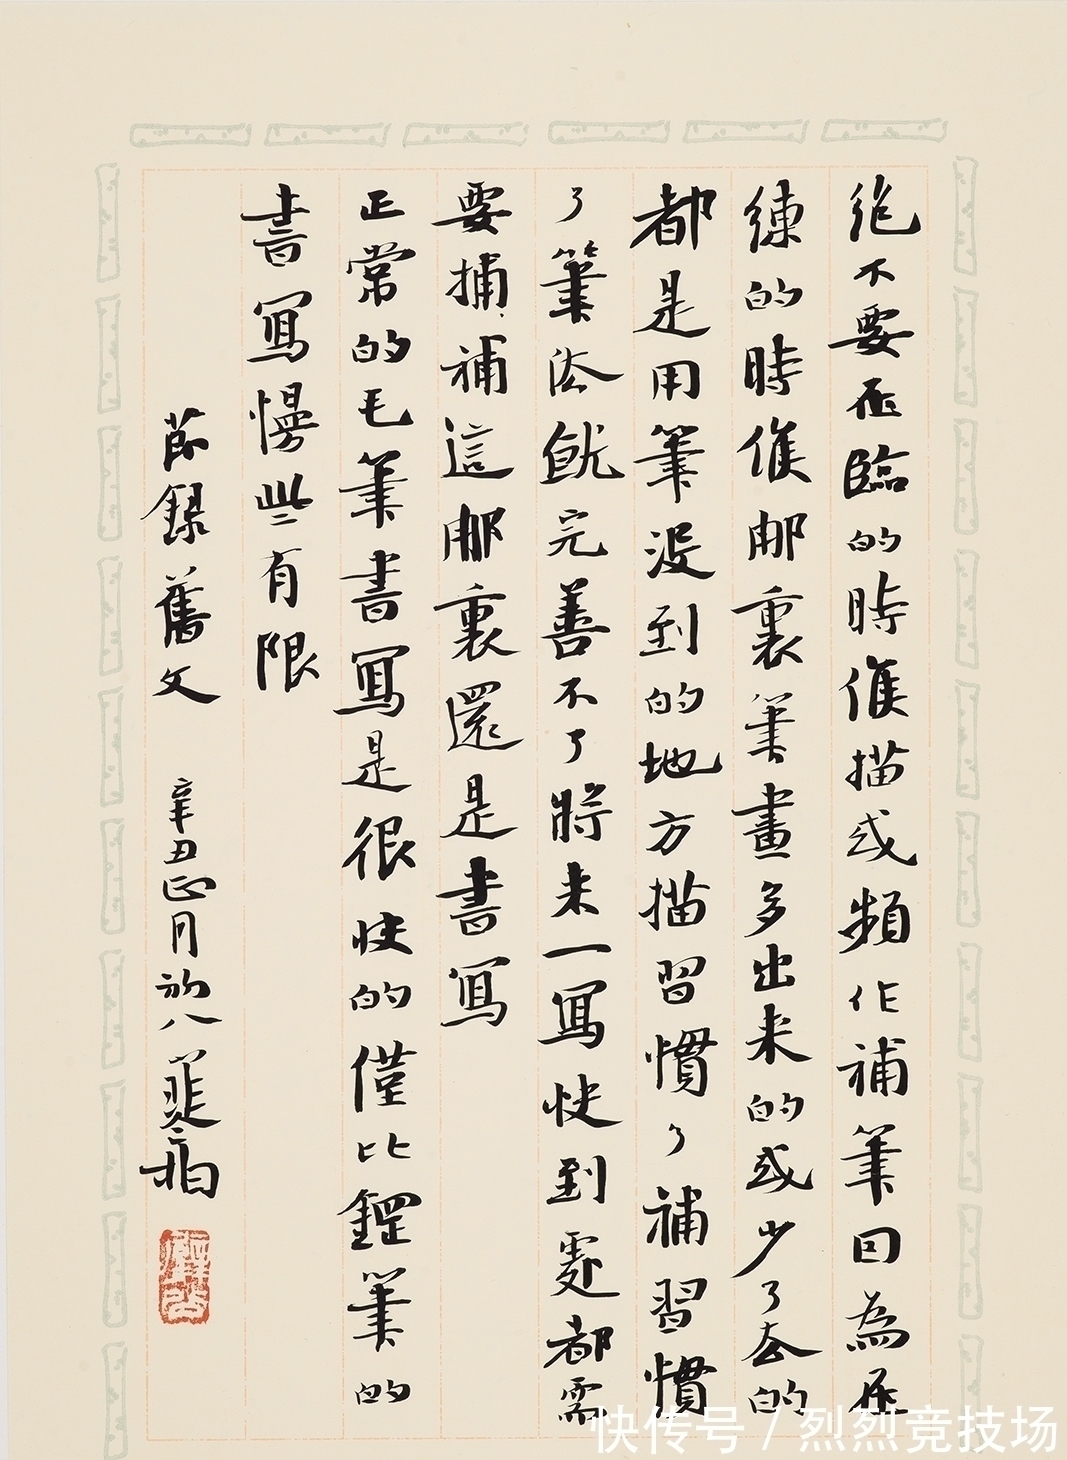 絶不要在臨的時候描或頻作補筆因為在
練的時候那裏筆畫多出来的或少了去的
都是用筆没到的地方描習慣了補習慣
了筆法就完善不了將来一寫快到處都需
要捕補這那裏還是書寫
正常的毛筆書寫是很快的僅比鋼筆的
書寫慢些有限
節録舊文 辛丑正月初八
快传号 / 烈烈竞技场